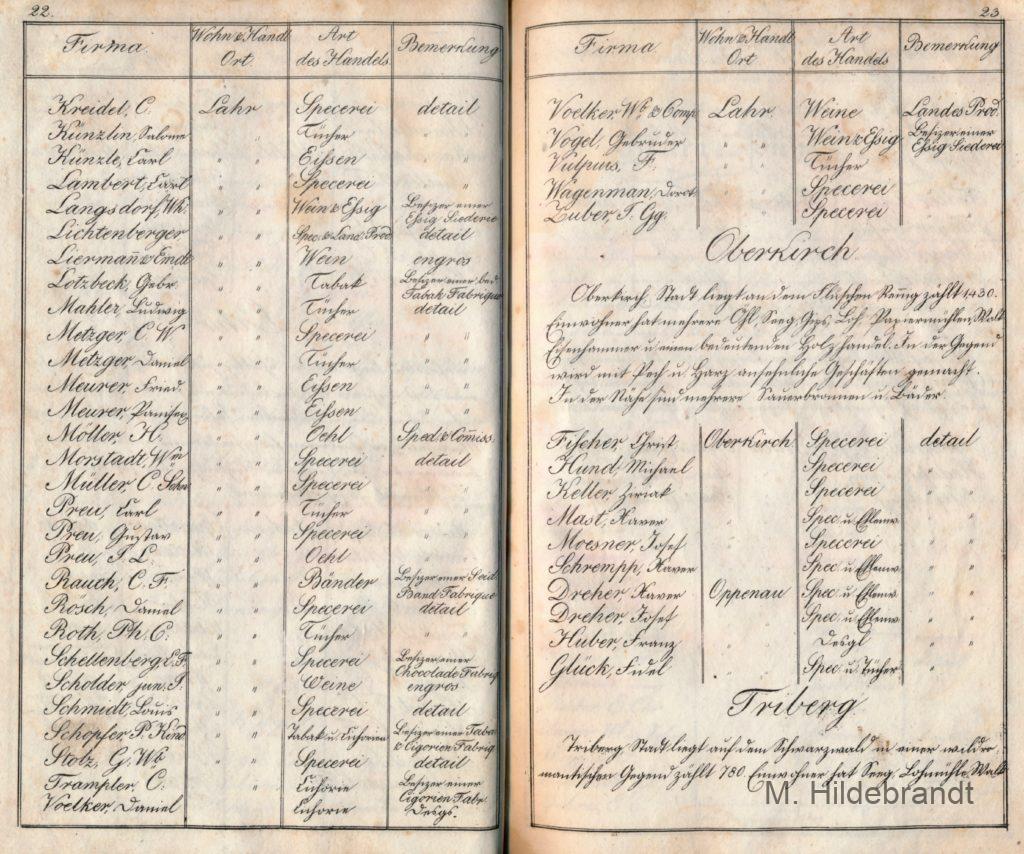 22.
Firma. Wohn & Handl Ort. Art des Handels Bemerkung
Kreidel, C. Lahr Specerei detail
Künzlin, Salome " " Tücher "
Künzle, Carl " " Eissen " "
Lambert, Carl " " Specerei " "
Langsdorf, Wh. " " Wein & Essig Besizer einer Essig Siederie
Lichtenberger " " Spec. & Land. Prod. detail
Liermañ & Emde " " Wein engros
Lotzbeck, Gebr. " " Tabak Besizer einer bed Tabak Fabrique
Mahler, Ludwig " " Tücher detail
Metzger, C. W. " " Specerei " "
Metzger, Daniel " " Tücher " "
Meurer, Fried. " " Eissen " "
Meurer, " " Eissen " "
Möller H. " " Oehl Sped. & Com̃iss.
Morstadt, Wm " " Specerei detail
Müller, C. " " Specerei " "
Preu, Carl " " Tücher " "
Preu, Gustav " " Specerei " "
Preu, J. L. " " Oehl " "
Rauch, C. F. " " Bänder Besizer einer Seid. Band Fabrique
Rösch, Daniel " " Specerei detail
Roth, Ph. C. " " Tücher " "
Schellenberg, C. F. " " Specerei Besizer einer Chocolade Fabriq
Scholder jun. J. " " Weine engros.
Schmidt, Louis " " Specerei detail
Schopfer P. Kind " " Tabak u. Cichorien Besizer einer Tabak & Cigorien Fabriq
Stolz, G. Wb " " Specerei detail
Trampler, C. " " Cichorie Besizer einer Cigorien Fabr.
Voelker, Daniel Cichorie Desgs.
23
Firma Wohn & Handl Ort Art des Handels Bemerkung
Voelker Wb. & Comp. Lahr. Weine Landes Prod.
Vogel, Gebruder " " Wein & Essig Besizer einer Essig Siederei
Vulpuis, F. " " Tücher
Wagenman, Dorot. Specerei "
Zuber J. Gg. Specerei "
Oberkirch.
Oberkirch, Stadt liegt an dem Fläschen zählt 1430.
Einwohner hat mehrere Ohl, Seeg, Gips, Loh, Papiermühlen, Walk
Eisenhammer u. einen bedeutenden Holzhandel. In der Gegend
wird mit Pech u. Harz ansehnliche Geschäften gemacht.
In der Nähe sind mehrere Sauerbronnen u. Bäder.
Fischer, Christ. Oberkirch Specerei detail
Hund, Michael Specerei "
Keller, Ziriak Specerei " "
Mast, Xaver " Spec. u. Ellenw. " "
Moesner, Josef Specerei " "
Schrempp, Xaver Spec. u. Ellenw. "
Dreher, Xaver Oppenau Spec. u. Ellenw. " "
Dreher, Josef Spec. u. Ellenw. " "
Huber, Franz Desgs. "
Glück, Fidel Spec. u. Tücher "
Triberg.
Triberg, Stadt liegt auf dem Schwarzwald in einer wildro-
mantischen Gegend zählt 780. Einwohner hat Seeg, Lohmühle, Walk
M. Hildebrandt